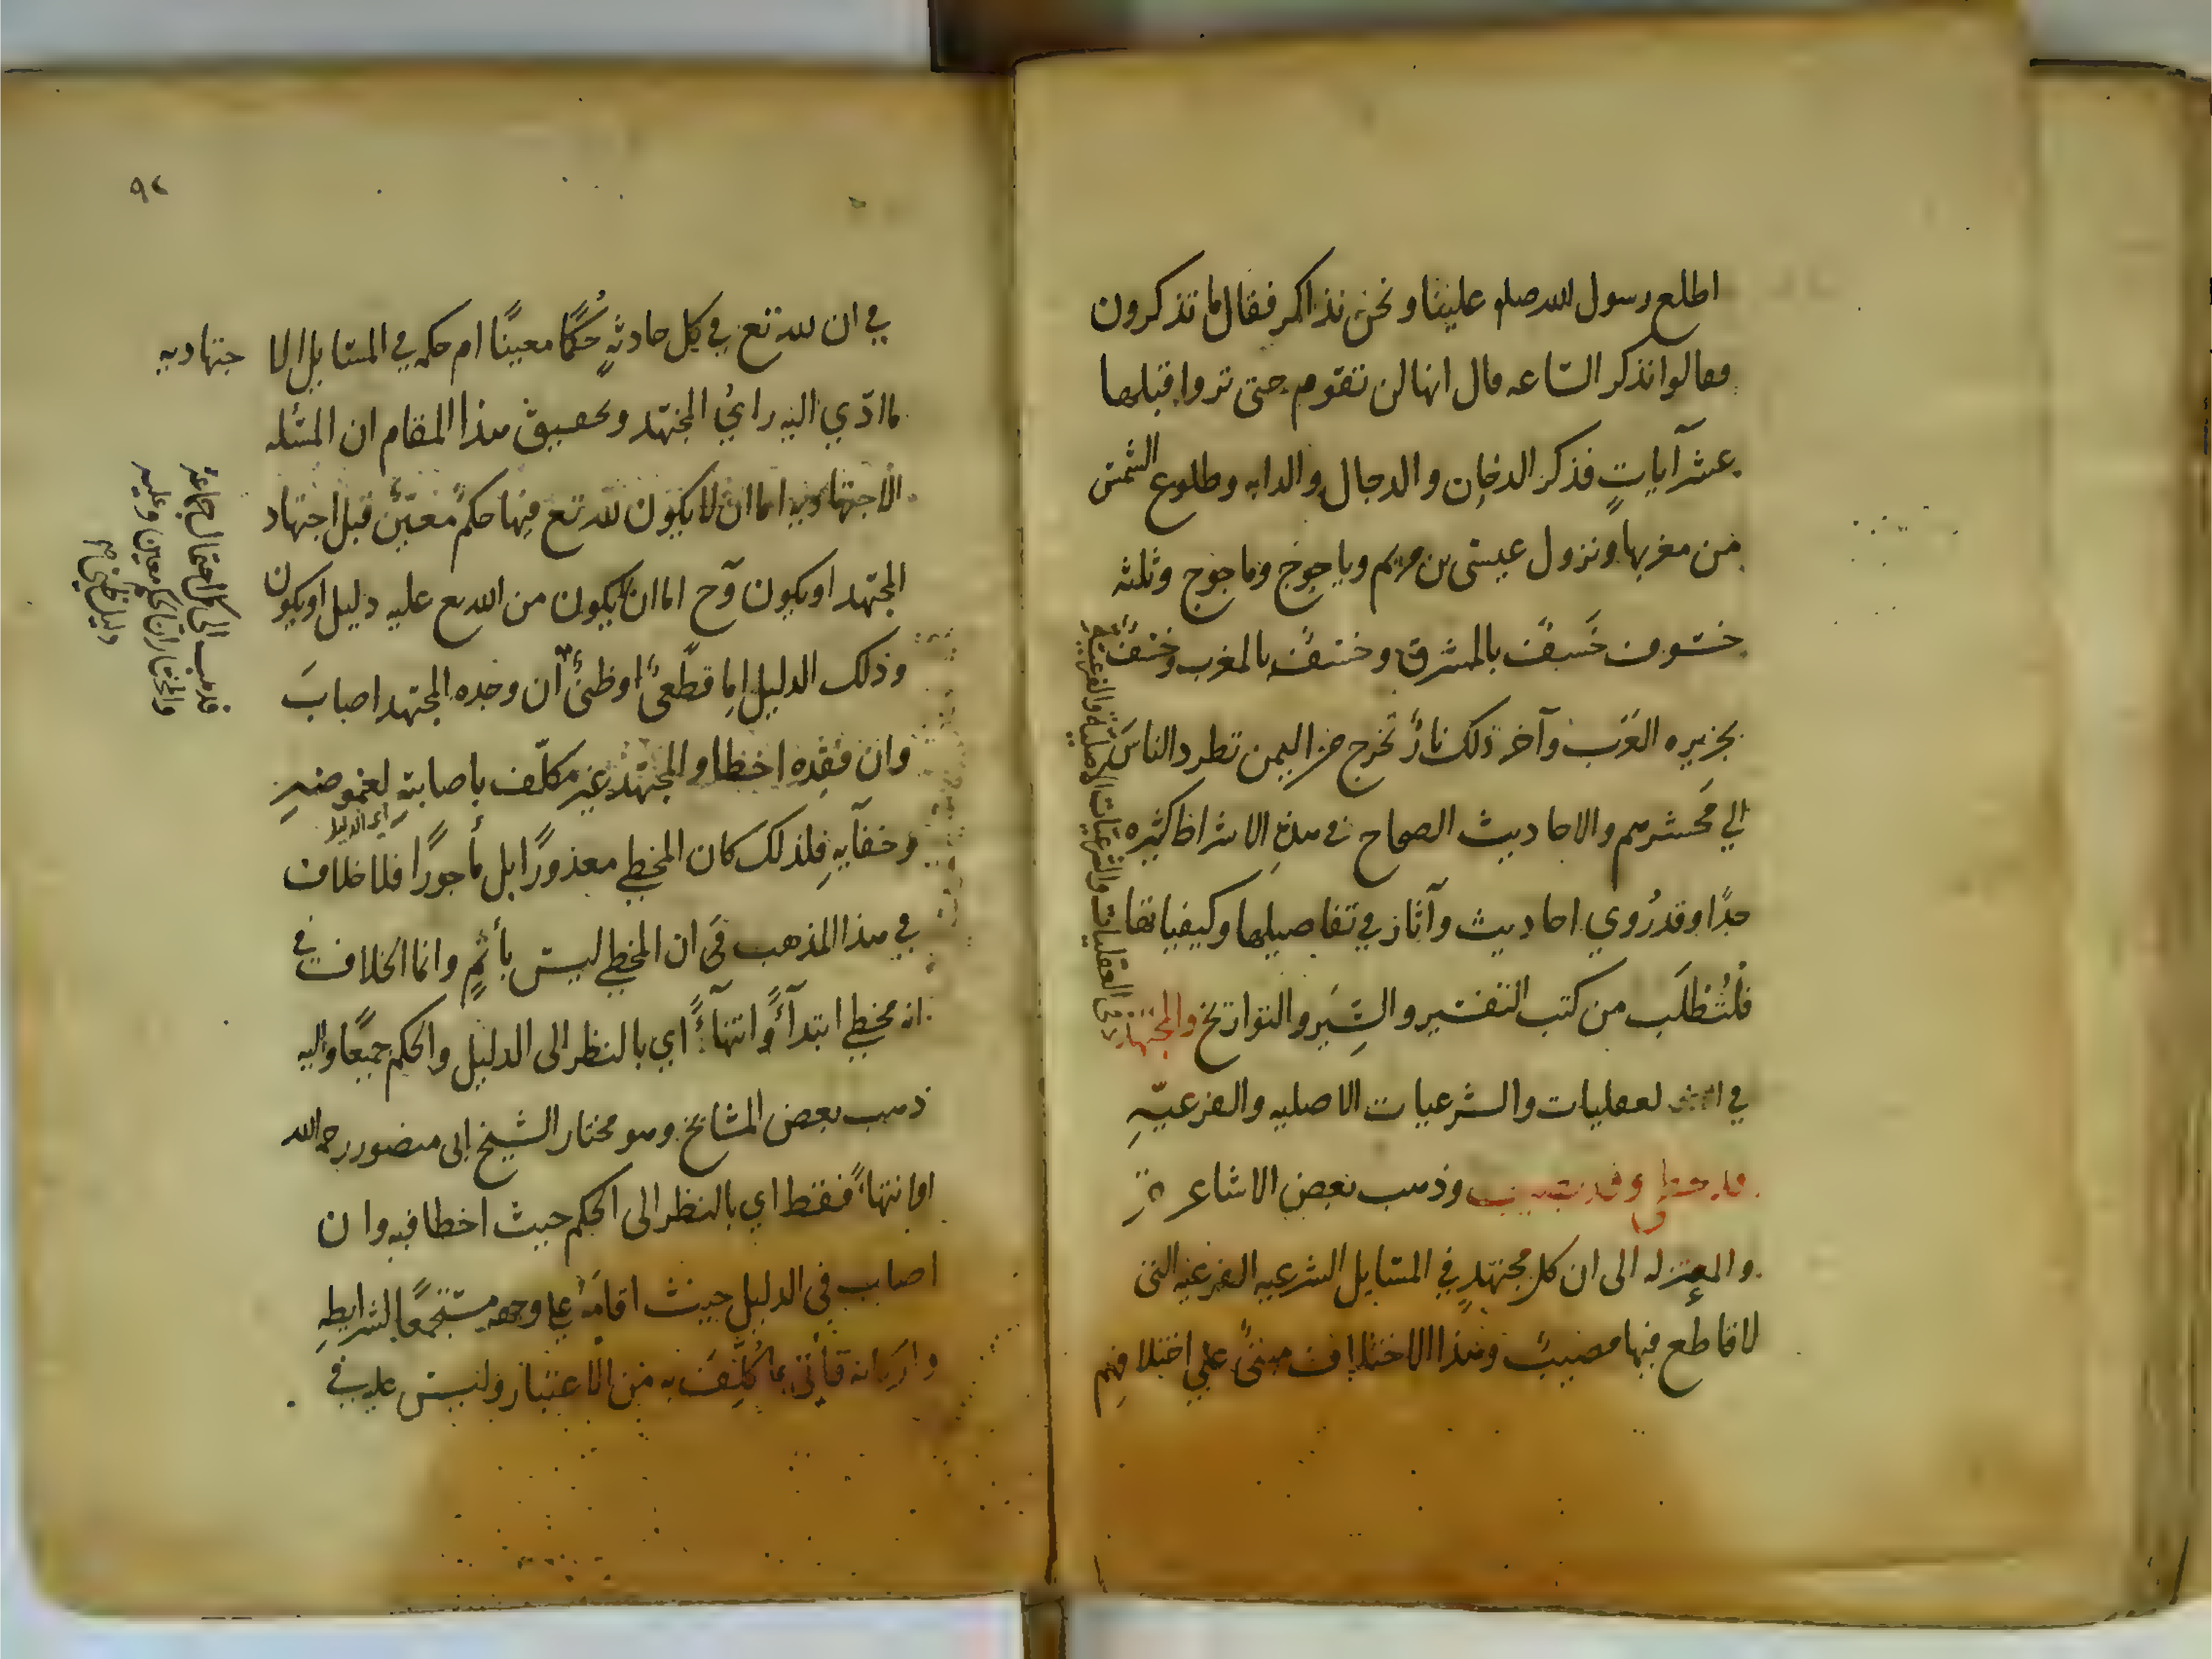 اطلع رسول الله صلم علينا ونحن نذاكر فقال ما تذكرون
فقالوا نذكر الساعه قال انها لن تقوم حتى تروا قبلها
عشر آياتٍ فذكر الدخان والدجال والدابه وطلوع الشمس
من مغربها ونزول عيسى بن مريم وياجوج وماجوج وثلثه
خسوف خَسفٌ بالمشرق وخسفٌ بالمغرب وخسفٌ
بجزيره العَرَب وآخر ذلك نارٌ تخرج من اليمن تطرد الناسَ
الي مَحشرهم والاحاديث الصحاح في هذهِ الاشراط كثيره
جدًا وقد رُوي احاديث وآثار في تفاصيلها وكيفياتها
فلتُطلَب من كتب التفسير والسِّيَر والتواريخ والمجتهد
في العقليات والشرعيات الاصليه والفرعيّهِ
قد يخطي وقد يصيب وذهب بعض الاشاعرة
والمعتزله الى ان كل مجتهدٍ في المسايل الشرعيه الفرعيه التى
لا قاطع فيها مصيبٌ وهذا الاختلاف مبنىٌ علي اختلافهِم
في العقليات والشرعيات الاصلية والفرعية
٩٢
في ان لله تع في كل حادثهٍ حُكمًا معينًا ام حكمه في المسايل الاجتهاديه
ما ادّي اليه رايُ المجتهد وتحقيق هذا المقام ان المسئله
الاجتهاديه اما ان لا يكون لله تع فيها حكمٌ معيّنٌ قبل اجتهاد
المجتهد او يكون وح اما ان لا يكون من الله تع عليه دليل او يكون
وذلك الدليل اما قطعىٌ او ظنىٌ ان وجده المجتهد اصابَ
وان فقده اخطا والمجتهد غير مكلّف باصابتهِ لغموضهِ
اي الدليل
وخفآيهِ فلذلك كان المخطي معذورًا بل مأجورًا فلا خلاف
في هذا المذهب في ان المخطي ليس بأثمٍ وانما الخلاف في
انه مخطي ابتدآءً وانتهآءً اي بالنظر الى الدليل والحكم جميعًا واليه
ذهب بعض المشايخ وهو مختار الشيخ ابى منصور رحمه الله
او انتهاءً فقط اي بالنظر الى الحكم حيث اخطا فيه وان
اصاب في الدليل حيث اقامَهُ علي وجههِ مستجمعًا لشرايطهِ
واركانه فأتى بما كُلّفَ به من الاعتبار وليس عليه في
قد ذهب الى كل احتمال جماعة
والمختار ان الحكم معين وعليه
دليل ظني